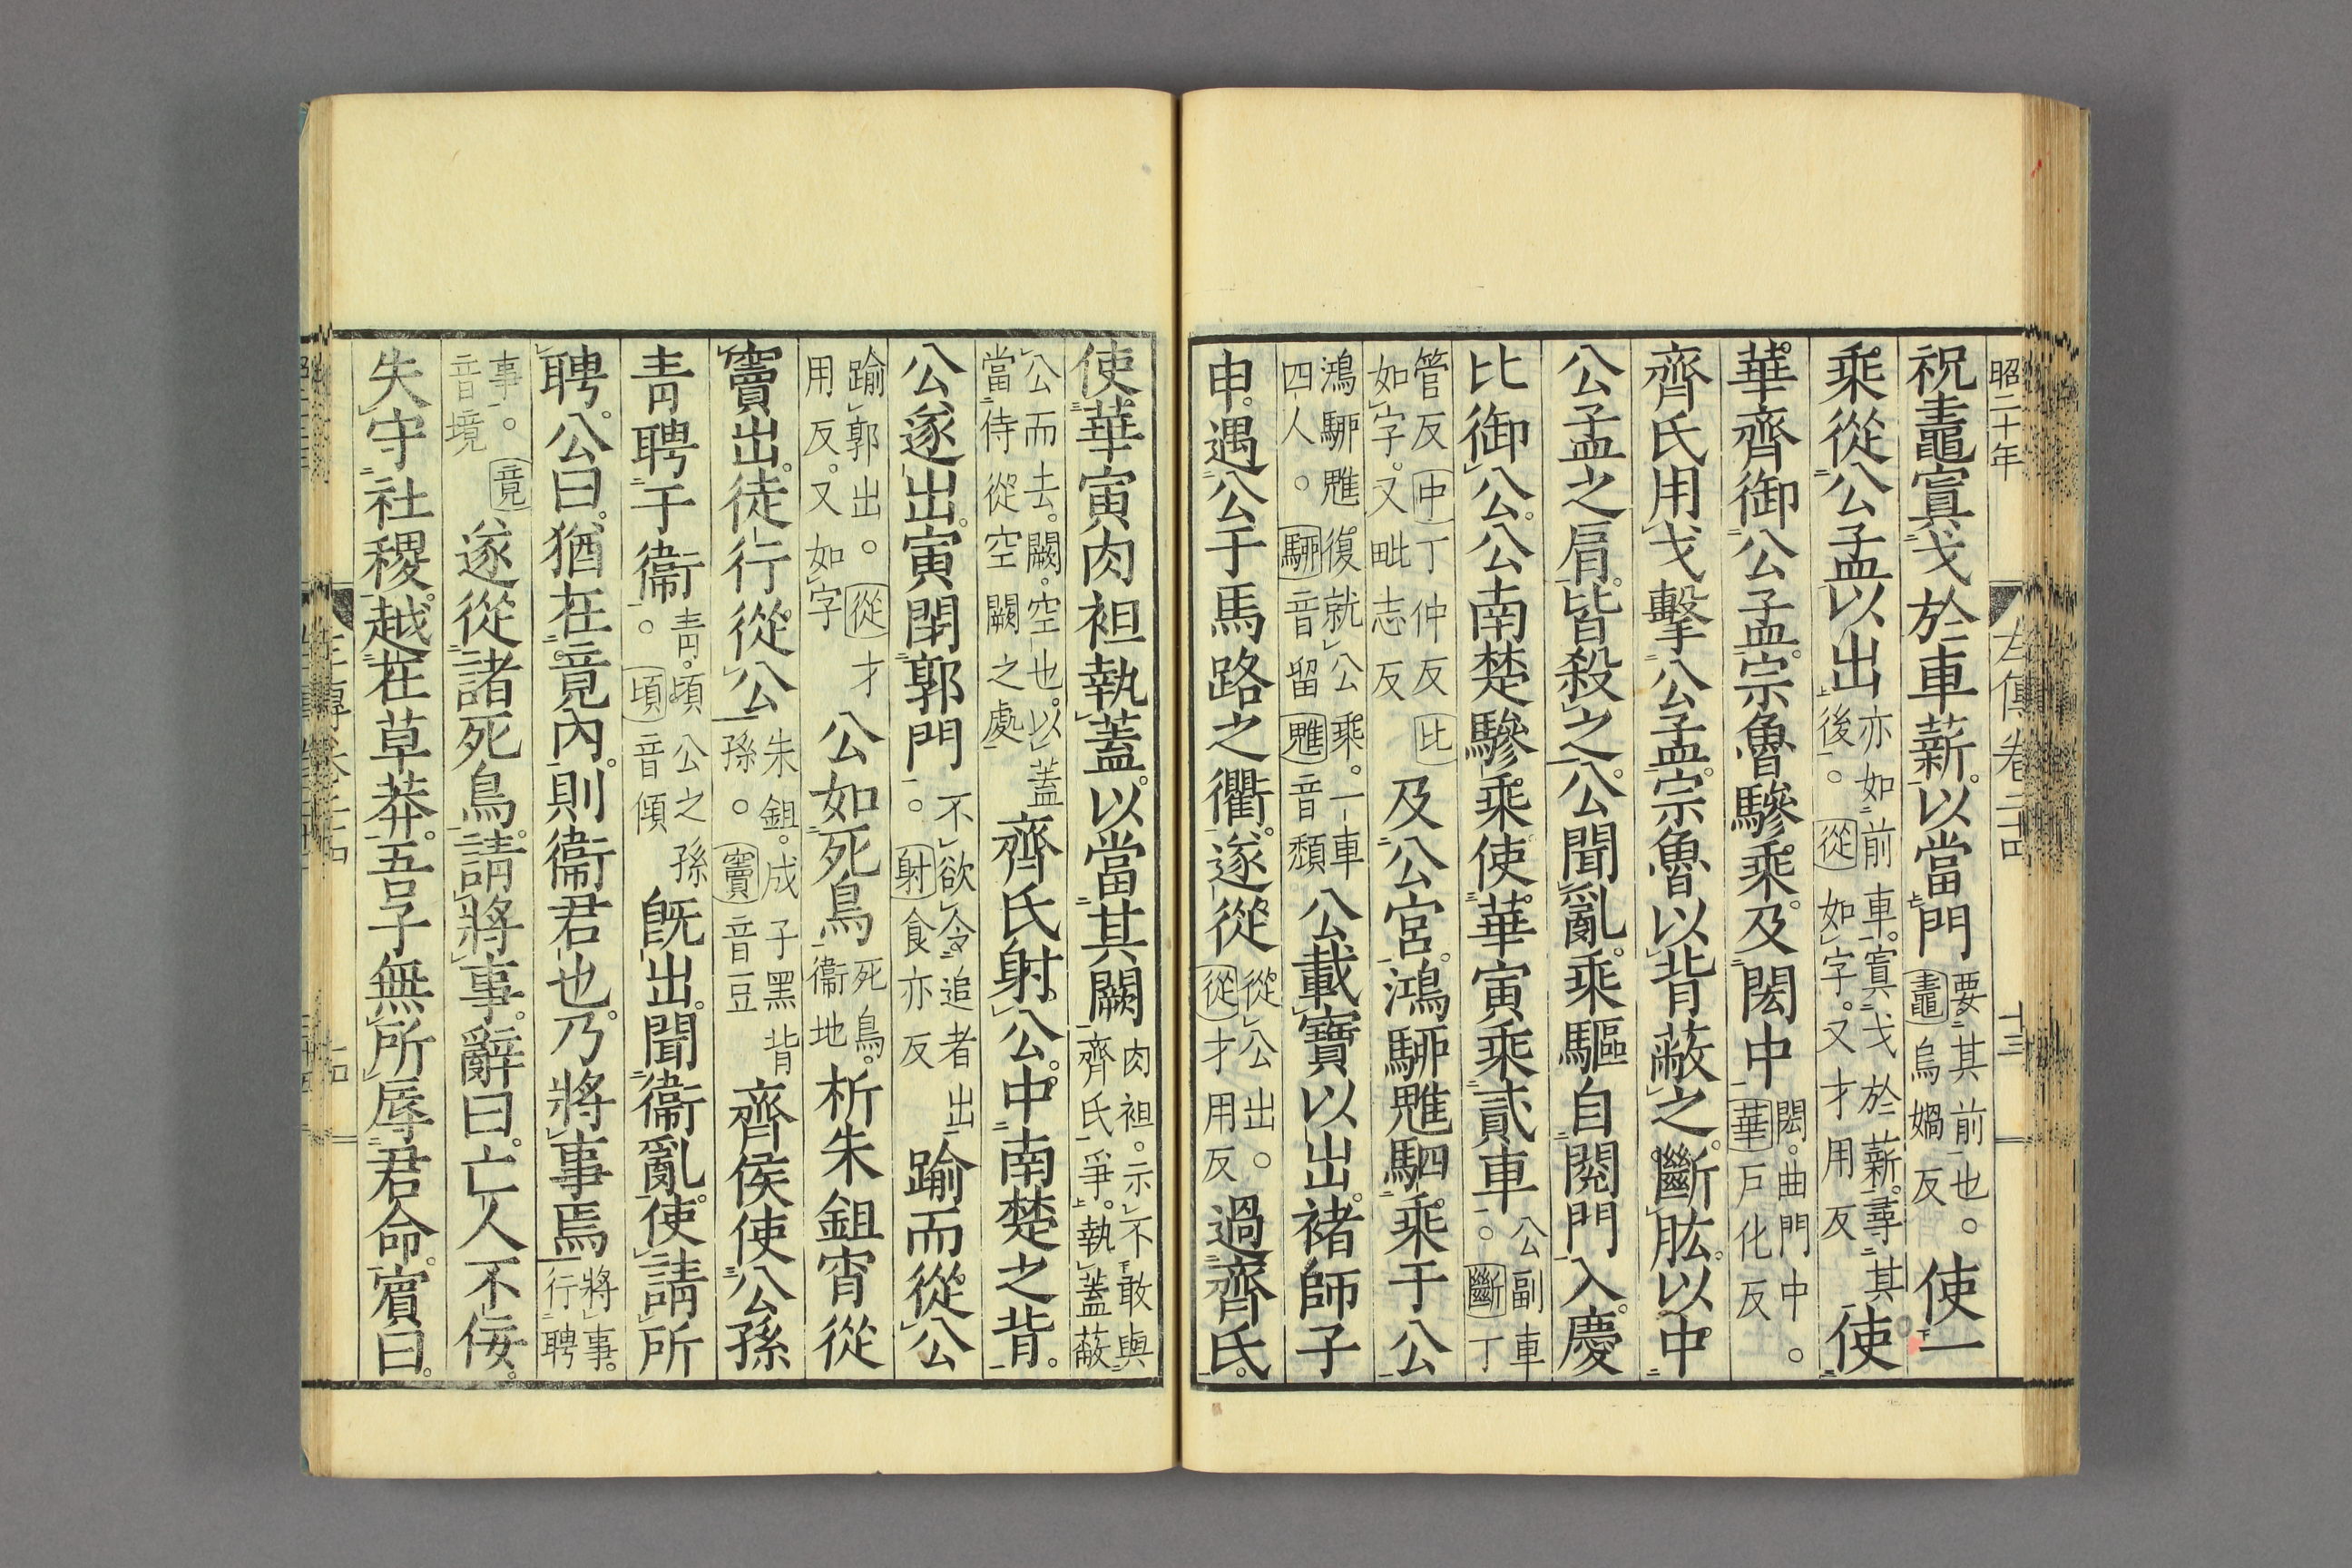 昭二十年
左傳卷二十四
十三
祝鼃寘戈於車薪。以當門要其前也。鼃烏媧反使一
乘從公孟以出亦如前車。寘戈於薪。尋其後。從如字。又才用反使
華齊御公孟。宗魯驂乘。及閎中閎。曲門中。華戶化反
齊氏用戈擊公孟。宗魯以背蔽之。斷肱。以中
公孟之肩。皆殺之。公聞亂。乘驅自閱門入。慶
比御公。公南楚驂乘。使華寅乘貳車公副車。斷丁
管反中丁仲反比如字。又毗志反及公宮。鴻駵魋駟乘于公
鴻駵魋復就公乘。一車四人。駵音留魋音頹公載寶以出。褚師子
申。遇公于馬路之衢。遂從從公出。從才用反過齊氏。
使華寅肉袒執蓋。以當其闕肉袒。示不敢與齊氏爭。執蓋蔽
公而去。闕。空也。以蓋當侍從空闕之處齊氏射公。中南楚之背。
公遂出。寅閉郭門不欲令追者出。射食亦反踰而從公
踰郭出。從才用反。又如字公如死鳥死鳥。衞地析朱鉏宵從
竇出。徒行從公朱鉏。成子黑背孫。竇音豆齊侯使公孫
靑聘于衞靑。頃公之孫。頃音傾旣出。聞衞亂。使請所
聘。公曰。猶在竟內。則衞君也。乃將事焉將事。行聘
事。竟音境遂從諸死鳥。請將事。辭曰。亡人不佞。
失守社稷。越在草莽。吾子無所辱君命。賓曰。